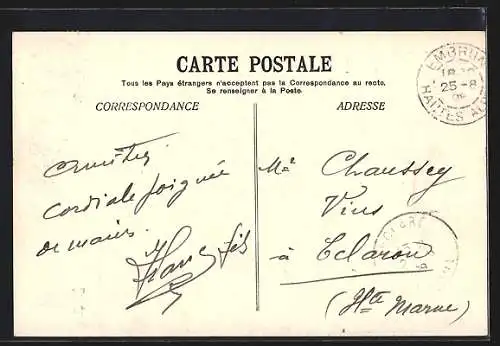 CARTE POSTALE
Tous les Pays étrangers n'acceptent pas la Correspondance au recto.
Se renseigner à la Poste.
CORRESPONDANCE
ADRESSE
EMBRUN
25-8
HAUTES ALPES
Cordiale poignée
de mains
fils
Chaussey
Vins
à Eclaron
(Hte Marne)